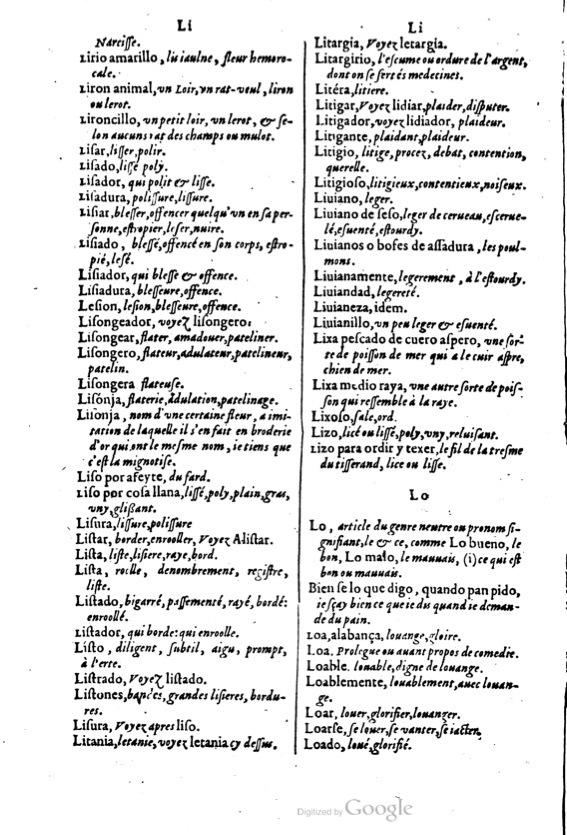 Li
Narcisse.
Lirio amarillo, liz iaulne, fleur hemoro-
cale.
Liron animal, vn Loir, vn rat-veul, liron
ou lerot.
Lironcillo, vn petit loir, vn lerot, & se-
lon aucuns rat des champs ou mulot.
Lisar, lisser, polir.
Lisado, lissé poly.
Lisador, qui polit & lisse.
Lisadura, polissure, lissure.
Lisiar, blesser, offencer quelqu'vn en sa per-
sonne, estropier, leser, nuire.
Lisiado, blessé, offencé en son corps, estro-
pié, lesé.
Lisiador, qui blesse & offence.
Lisiadura, blesseure, offence.
Lesion, lesion, blesseure, offence.
Lisongeador, voyez lisongero:
Lisongear, flater, amadouer, pateliner.
Lisongero, flateur, adulateur, patelineur,
patelin.
Lisongera flateuse.
Lisonja, flaterie, adulation, patelinage.
Lisonja, nom d'vne certaine fleur, a imi-
tation de laquelle il s'en fait en broderie
d'or qui ont le mesme nom, ie tiens que
c'est la mignotise.
Liso por afeyte, du fard.
Liso por cosa llana, lissé, poly, plain, gras,
vny, glissant.
Lisura, lissure, polissure
Listar, border, enrooller, Voyez Alistar.
Lista, liste, lisiere, raye, bord.
Lista, roolle, denombrement, registre,
liste.
Listado, bigarré, passementé, rayé, bordé:
enroollé.
Listador, qui borde: qui enroolle.
Listo, diligent, subtil, aigu, prompt,
à l'erte.
Listrado, Voyez listado.
Listones, bandes, grandes lisieres, bordu-
res.
Lisura, Voyez apres liso.
Litania, letanie, voyez letania cy dessus.
Li
Litargia, Voyez letargia.
Litargirio, l'escume ou ordure de l'argent,
dont on se sert és medecines.
Litéra, litiere.
Litigar, Voyez lidiar, plaider, disputer.
Litigador, voyez lidiador, plaideur.
Litigante, plaidant, plaideur.
Litigio, litige, procez, debat, contention,
querelle.
Litigioso, litigieux, contentieux, noiseux.
Liuiano, leger.
Liuiano de seso, leger de cerueau, escerue-
lé, esuenté, estourdy.
Liuianos o bofes de assadura, les poul-
mons.
Liuianamente, legerement, à l'estourdy.
Liuiandad, legereté.
Liuianeza, idem.
Liuianillo, vn peu leger & esuenté.
Lixa pescado de cuero aspero, vne sor-
te de poisson de mer qui a le cuir aspre,
chien de mer.
Lixa medio raya, vne autre sorte de pois-
son qui ressemble à la raye.
Lixoso, sale, ord.
Lizo, licé ou lissé, poly, vny, reluisant.
Lizo para ordir y texer, le fil de la tresme
du tisserand, lice ou lisse.
Lo
Lo, article du genre neutre ou pronom si-
gnifiant, le & ce, comme Lo bueno, le
bon, Lo malo, le mauuais, (i) ce qui est
bon ou mauuais.
Bien se lo que digo, quando pan pido,
ie sçay bien ce que ie du quand ie deman-
de du pain.
Loa, alabança, louange, gloire.
Loa. Prologue ou auant propos de comedie.
Loable. louable, digne de louange.
Loablemente, louablement, auec louan-
ge.
Loar, louer, glorifier, louanger.
Loarse, se louer, se vanter, se iacter.
Loado, loué, glorifié.
Digitized by Google